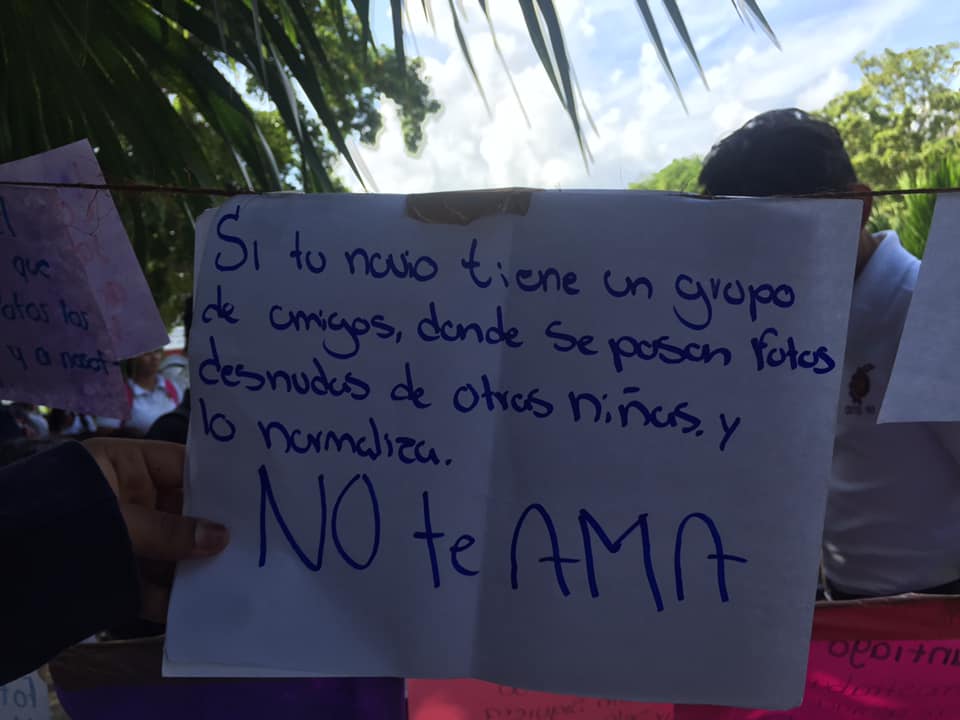 Si tu novio tiene un grupo
de amigos, donde se pasan fotos
desnudas de otras niñas, y
lo normaliza.
NO te AMA
que
fotos las
y a nosot-